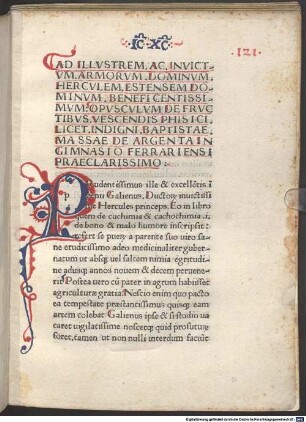 ·IC·XC·
·121·
AD ILLVSTREM, AC, INVICT
VM, ARMORVM, DOMINVM,
HERCVLEM, ESTENSEM DO
MINVM, BENEFICENTISSI
MVM: OPVSCVLVM DE FRVC
TIBVS, VESCENDIS PHISICI
LICET, INDIGNI, BAPTISTAE,
MASSAE DE ARGENTA IN
GIMNASIO FERRARIENSI
PRAECLARISSIMO:
Prudentissimus ille & excellētis ī
genu Galienus, Ductor inuictissi
me Hercules princeps. Eo in libro
quem de cuchimia & cachochimia .i.
de bono & malo humore inscripsit:
refert se pueȝ a parente suo uiro sa
ne eruditissimo adeo medicinaliter guber
natum ut absq; uel saltem nimia egritudi
ne adusq; annos nouem & decem peruene
rit. Postea uero cū pater in agrum habiisset
agriculturæ gratia. Nescio enim quo pacto
ea tempestate præstantissimus quisq; eam
artem colebat. Galienus ipse & si studio ua
caret uigilantissime nosceretq; quid prosuturū
foret, tamen ut non nulli interdum facere